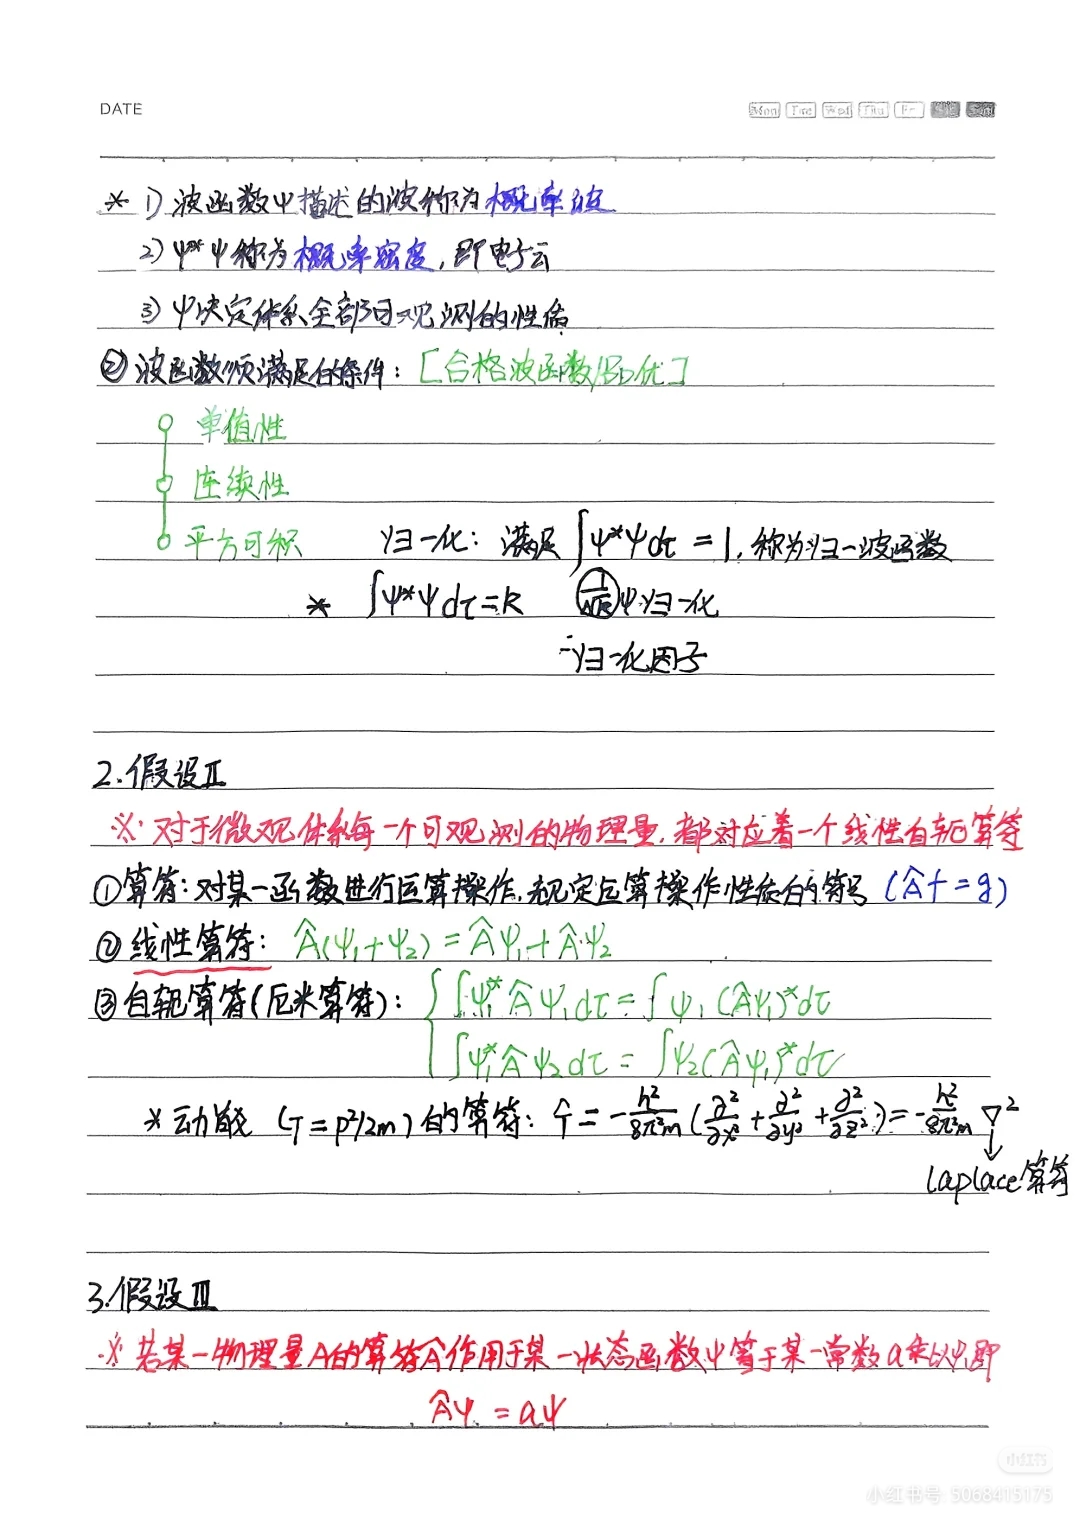 DATE
Mon Tue Wed Thu Fri Sat Sun
* 1) 波函数ψ描述的波称为概率波
2) ψ*ψ称为概率密度，即电子云
3) ψ决定体系全部可观测的性质
② 波函数须满足的条件：[合格波函数/品优]
单值性
连续性
平方可积 归一化：满足 ∫ψ*ψdτ = 1，称为归一波函数
* ∫ψ*ψdτ=K 1/√K ψ归一化
归一化因子
2.假设Ⅱ
※ 对于微观体系每一个可观测的物理量，都对应着一个线性自轭算符
①算符：对某一函数进行运算操作，规定运算操作性质的符号 (Âf=g)
② 线性算符： Â(ψ₁+ψ₂) = Âψ₁+Âψ₂
③自轭算符(厄米算符)： ∫ψ₁*Âψ₁dτ=∫ψ₁(Âψ₁)*dτ
∫ψ₁*Âψ₂dτ = ∫ψ₂(Âψ₁)*dτ
* 动能 (T=p²/2m) 的算符：T̂ = -h²/8π²m (∂²/∂x² + ∂²/∂y² + ∂²/∂z²) = -h²/8π²m ∇²
Laplace算符
3.假设Ⅲ
※ 若某一物理量A的算符Â作用于某一状态函数ψ等于某一常数a乘以ψ,即
Âψ = aψ
小红书
小红书号: 5068415175